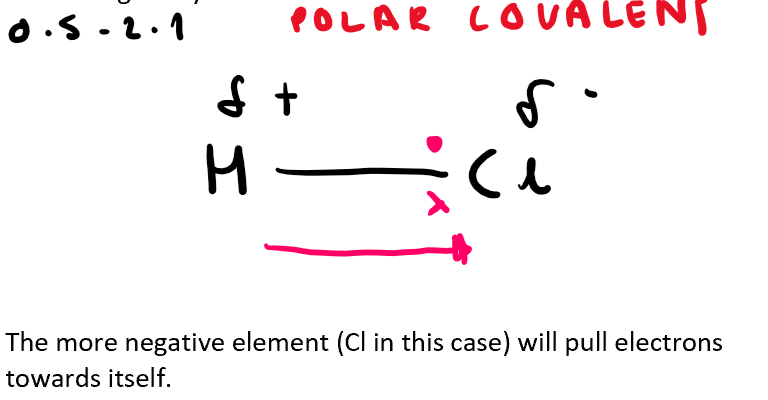 0.5-2.1 POLAR COVALENT
δ+ δ-
H — Cl
The more negative element (Cl in this case) will pull electrons
towards itself.